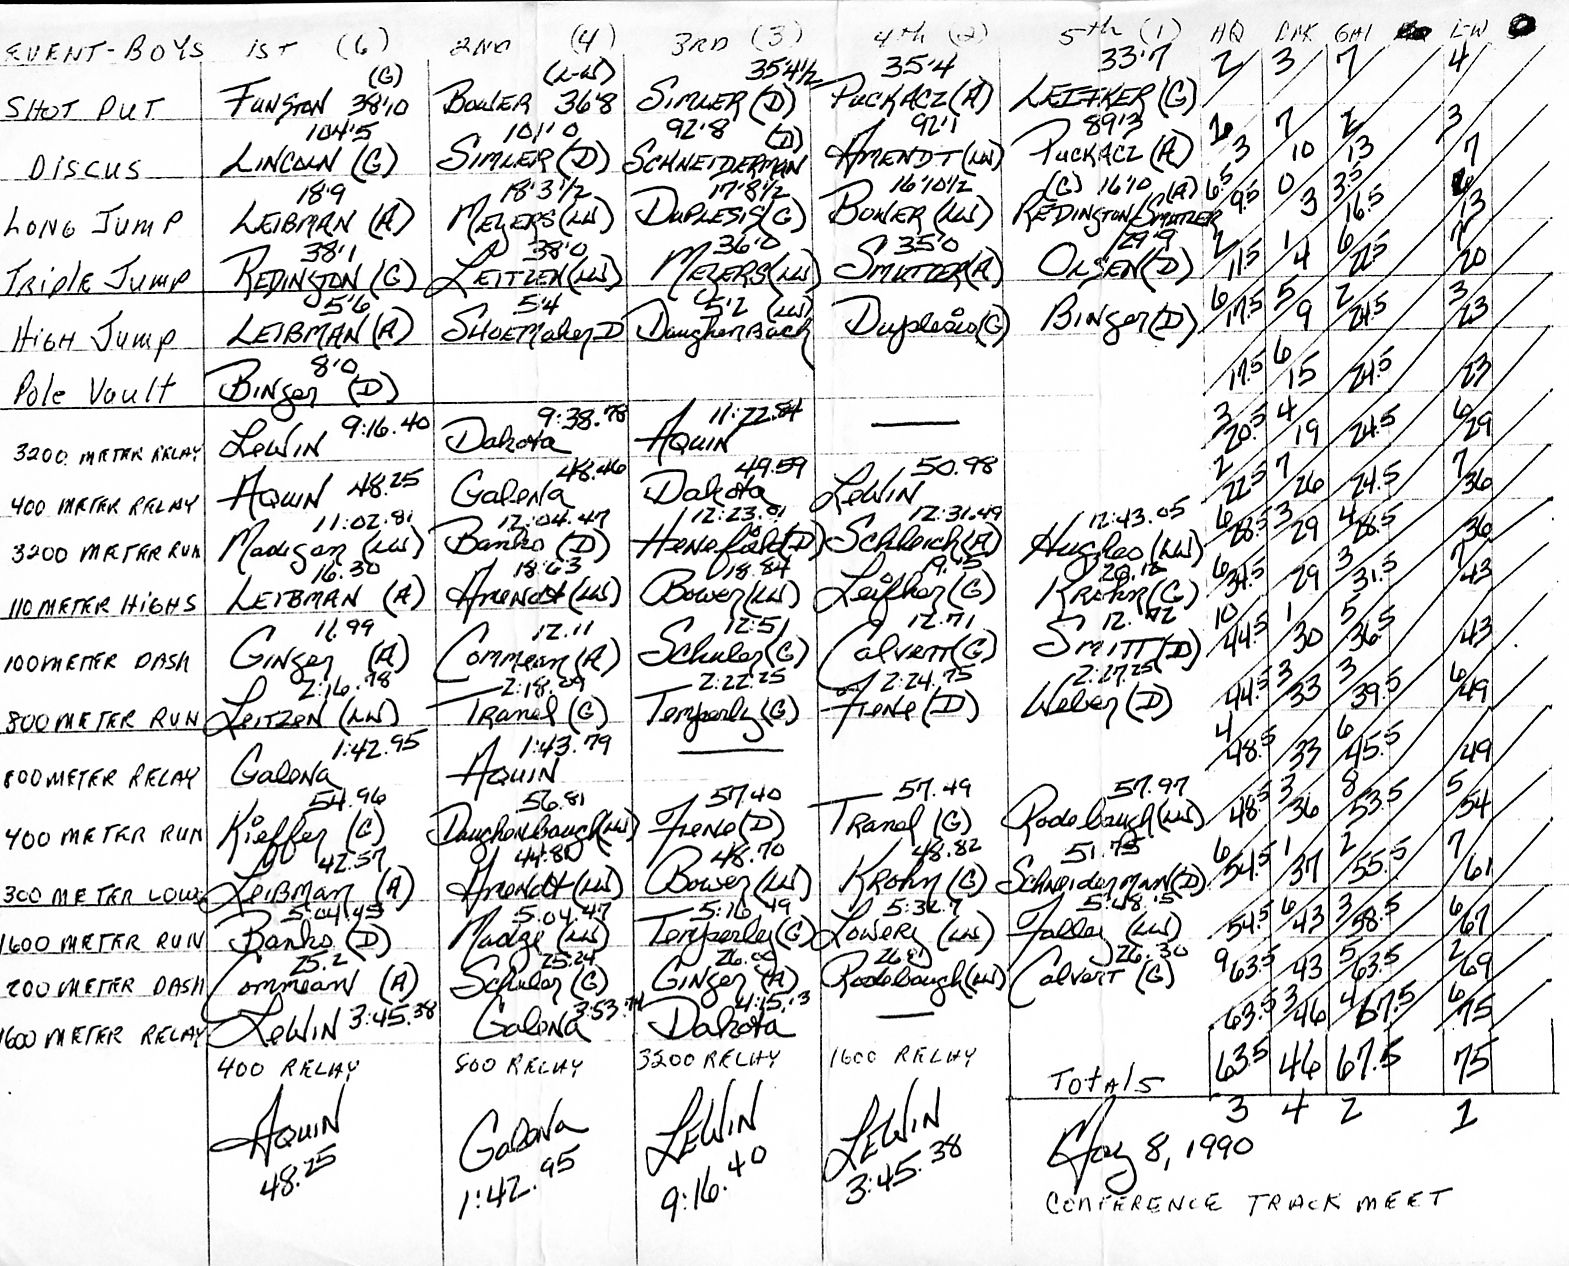 EVENT-BOYS 1ST (6) 2ND (4) 3RD (3) 4th (2) 5th (1) AQ DAK GAL L-W
(G) (L-W) 35'4½ 35'4 33'7 2 3 7 4
SHOT PUT FUNSTON 38'10 BOWER 36'8 SIMLER (D) PUCKACZ (A) LEIFKER (G)
104'5 101'0 92'8 (D) 92'1 89'3 7 2 3
DISCUS LINCOLN (G) SIMLER (D) SCHNEIDERMAN AMENDT (LW) PUCKACZ (A) 3 10 13 7
18'9 18'3½ 17'8½ 16'10½ (G) 16'10 (A) 6.5 0 3.5
LONG JUMP LEIBMAN (A) MEYERS (LW) DUPLESIS (G) BOWER (LW) REDINGTON/SMITZER 9.5 3 16.5 13
38'1 38'0 36'0 35'0 29'9 2 1 6 7
TRIPLE JUMP REDINGTON (G) LEITZEN (LW) MEYERS (LW) SMITZER (A) OLSEN (D) 11.5 4 22.5 20
5'6 5'4 5'2 (LW) 6 5 2 3
HIGH JUMP LEIBMAN (A) SHOEMAKER D Daughenbauch Duplesis (G) BINGER (D) 17.5 9 24.5 23
8'0 6
Pole Vault BINGER (D) 17.5 15 24.5 23
9:16.40 9:38.78 11:22.84 3 4 6
3200 METER RELAY LEWIN Dakota AQUIN — 20.5 19 24.5 29
48.46 49.59 50.98 2 7 7
400 METER RELAY AQUIN 48.25 Galena Dakota LEWIN 22.5 26 24.5 36
11:02.81 12:04.47 12:23.91 12:31.49 12:43.05 6 3 4
3200 METER RUN Madigan (LW) Banks (D) Henefield (D) Schleich (A) Hughes (LW) 28.5 29 28.5 36
16.30 18.63 18.84 19.15 20.18 6 3 7
110 METER HIGHS LEIBMAN (A) Amendt (LW) Bower (LW) Leifker (G) Krohn (G) 34.5 29 31.5 43
11.99 12.11 12.51 12.71 12.92 10 1 5
100 METER DASH Ginger (A) Commean (A) Schuler (G) Calvert (G) SMITT (D) 44.5 30 36.5 43
2:16.98 2:18.09 2:22.25 2:24.75 2:27.25 3 3 6
800 METER RUN LEITZEN (LW) Tranel (G) Temperly (G) Fiene (D) Weber (D) 44.5 33 39.5 49
1:42.95 1:43.79 4 6
800 METER RELAY Galena AQUIN — 48.5 33 45.5 49
54.96 56.81 57.40 57.49 57.97 3 8 5
400 METER RUN Kieffer (G) Daughenbaugh (LW) Fiene (D) Tranel (G) Rodebaugh (LW) 48.5 36 53.5 54
42.57 44.80 48.70 48.82 51.75 6 1 2 7
300 METER LOWS LEIBMAN (A) Amendt (LW) Bower (LW) Krohn (G) Schneiderman (D) 54.5 37 55.5 61
5:04.45 5:04.47 5:16.49 5:48.15 6 3 6
1600 METER RUN Banks (D) Madge (LW) Temperly (G) Lowery (LW) Falley (LW) 54.5 43 58.5 67
25.2 25.24 26.00 26.30 9 5 2
200 METER DASH Commean (A) Schuler (G) Ginger (A) Rodebaugh (LW) Calvert (G) 63.5 43 63.5 69
3:53.74 4:15.13 3 4 6
1600 METER RELAY LEWIN 3:45.38 Galena Dakota — 63.5 46 67.5 75
400 RELAY 800 RELAY 3200 RELAY 1600 RELAY TOTALS 63.5 46 67.5 75
3 4 2 1
AQUIN Galena LEWIN LEWIN May 8, 1990
48.25 1:42.95 9:16.40 3:45.38
CONFERENCE TRACK MEET